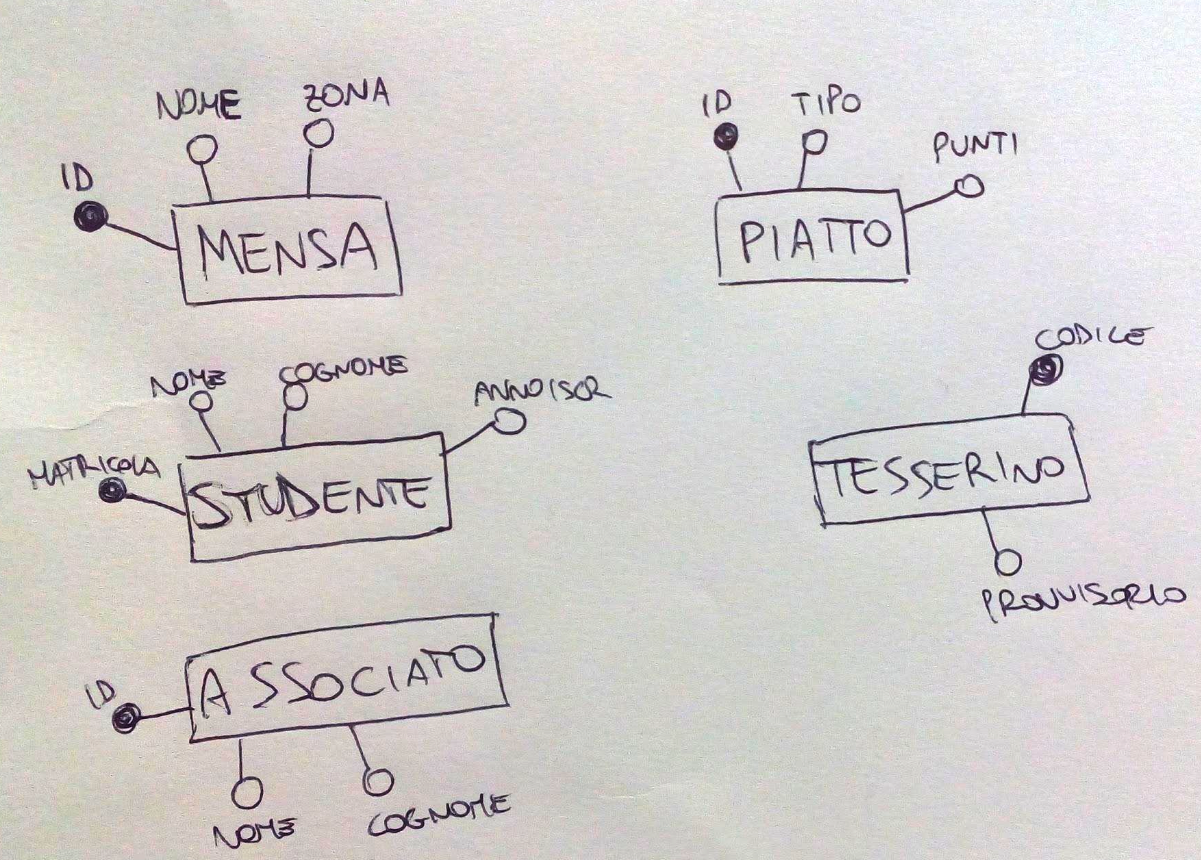 NOME
ZONA
ID
MENSA
ID
TIPO
PUNTI
PIATTO
NOME
COGNOME
ANNOISCR
MATRICOLA
STUDENTE
CODICE
TESSERINO
PROVVISORIO
ID
ASSOCIATO
NOME
COGNOME